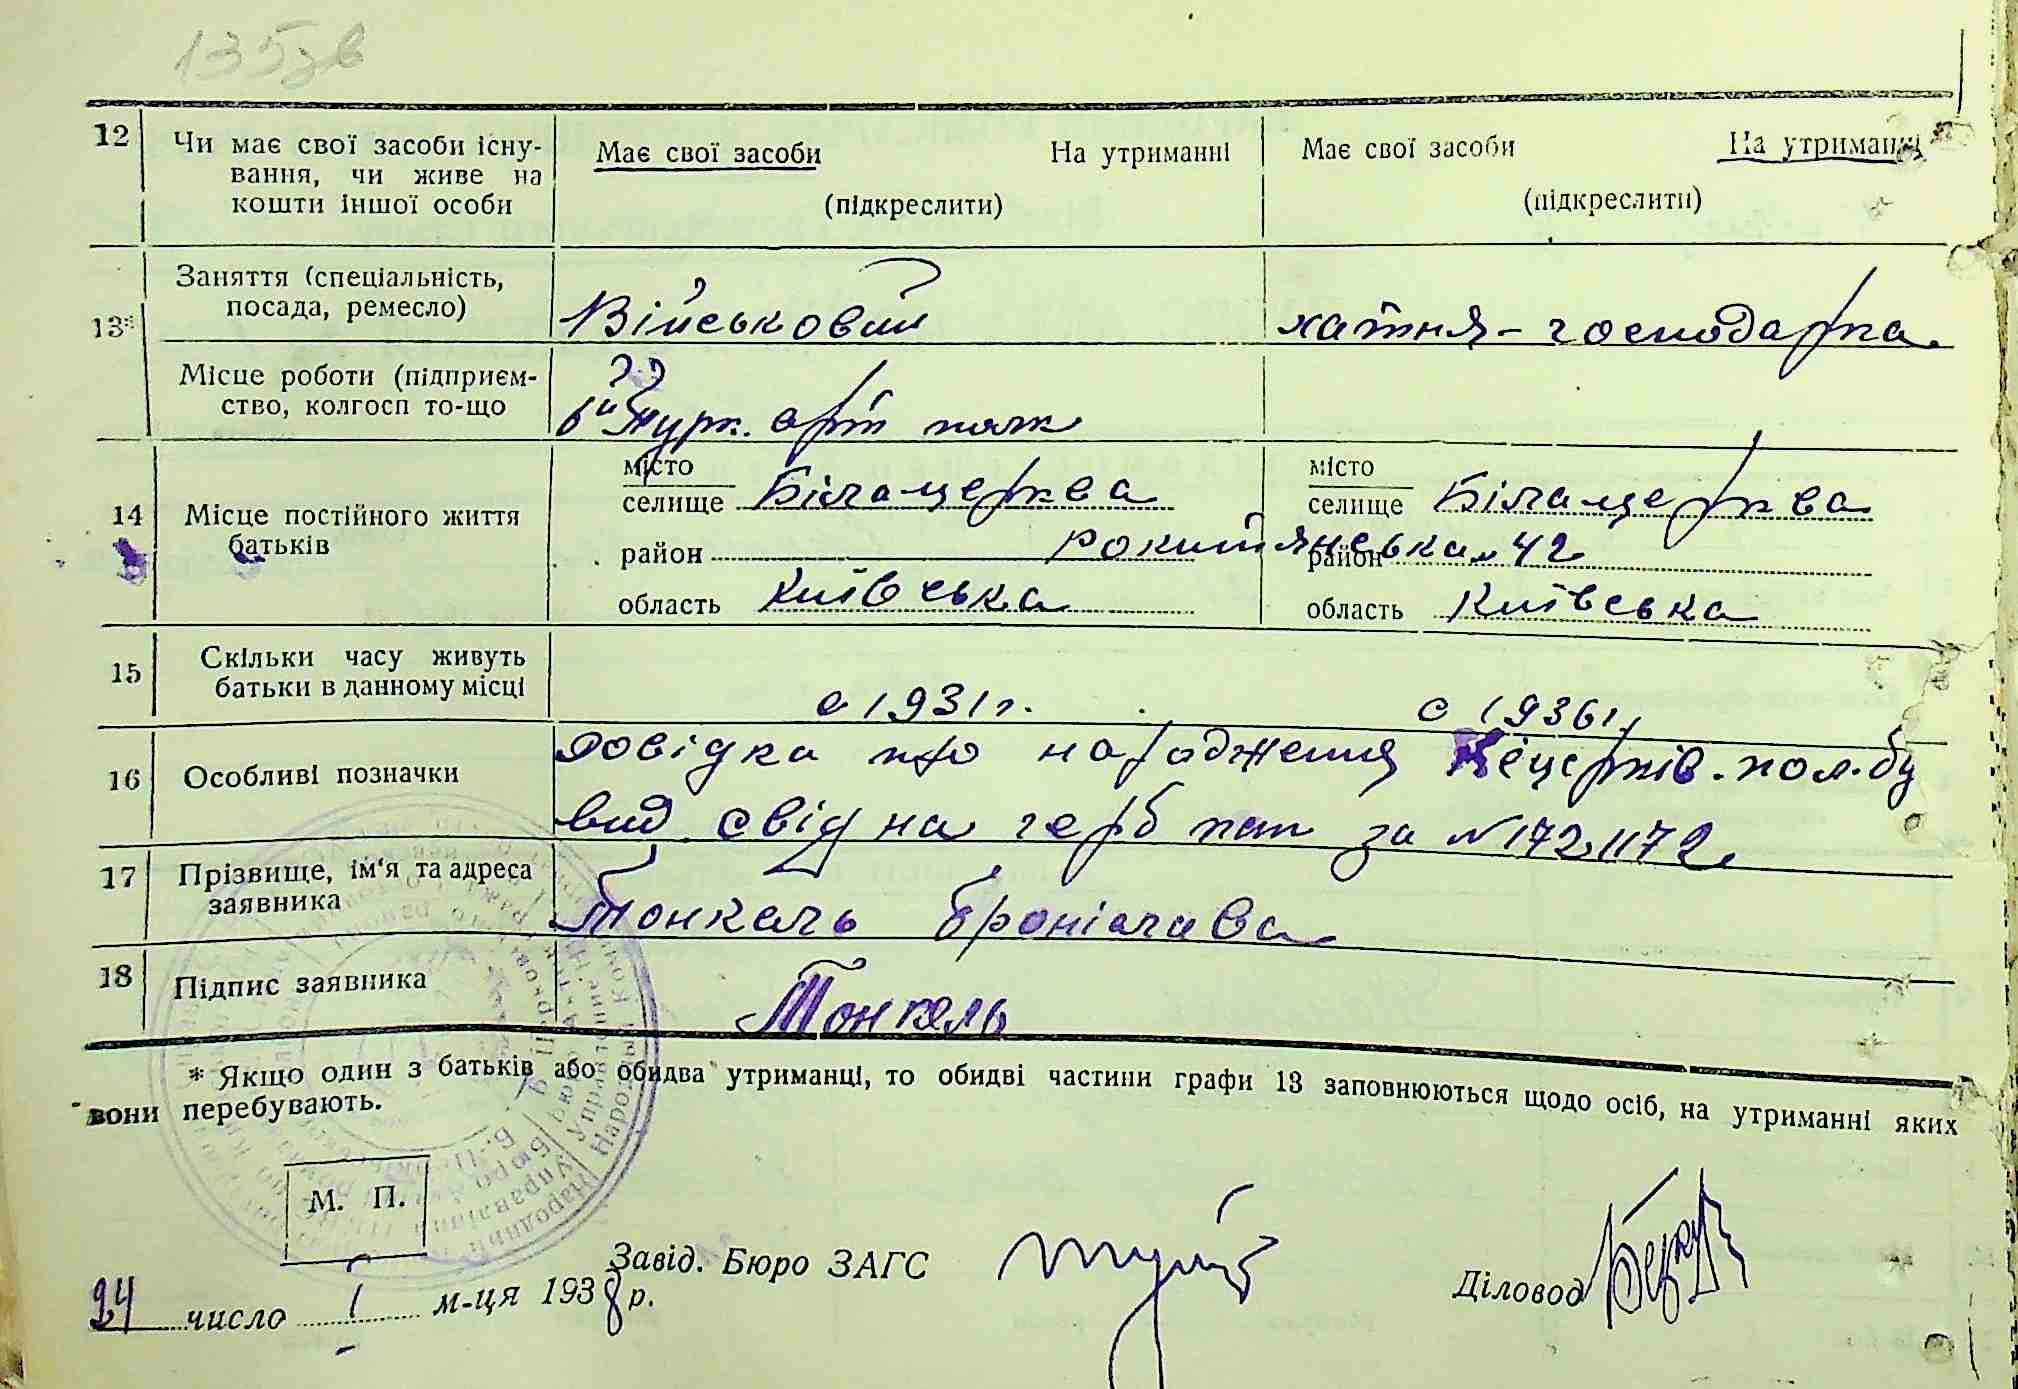 135зв
12 Чи має свої засоби існу-
вання, чи живе на
кошти іншої особи
Має свої засоби На утриманні
(підкреслити)
Має свої засоби На утриманні
(підкреслити)
13* Заняття (спеціальність,
посада, ремесло)
Військовий
хатня-господарка
Місце роботи (підприєм-
ство, колгосп то-що
6й Турк. арт полк
14 Місце постійного життя
батьків
місто
селище Білацерква
район Рокитянська 42
область Київська
місто
селище Білацерква
район
область Київська
15 Скільки часу живуть
батьки в данному місці
с 1931г.
с 1936г.
16 Особливі позначки
Довідка про народження Білоцерків. пол. бу
вид свід на герб пап за №172,1172
17 Прізвище, ім'я та адреса
заявника
Тонкель Броніслава
18 Підпис заявника
Тонкель
* Якщо один з батьків або обидва утриманці, то обидві частини графи 13 заповнюються щодо осіб, на утриманні яких
вони перебувають.
М. П.
Завід. Бюро ЗАГС
Діловод
24 число 1 м-ця 1938 р.